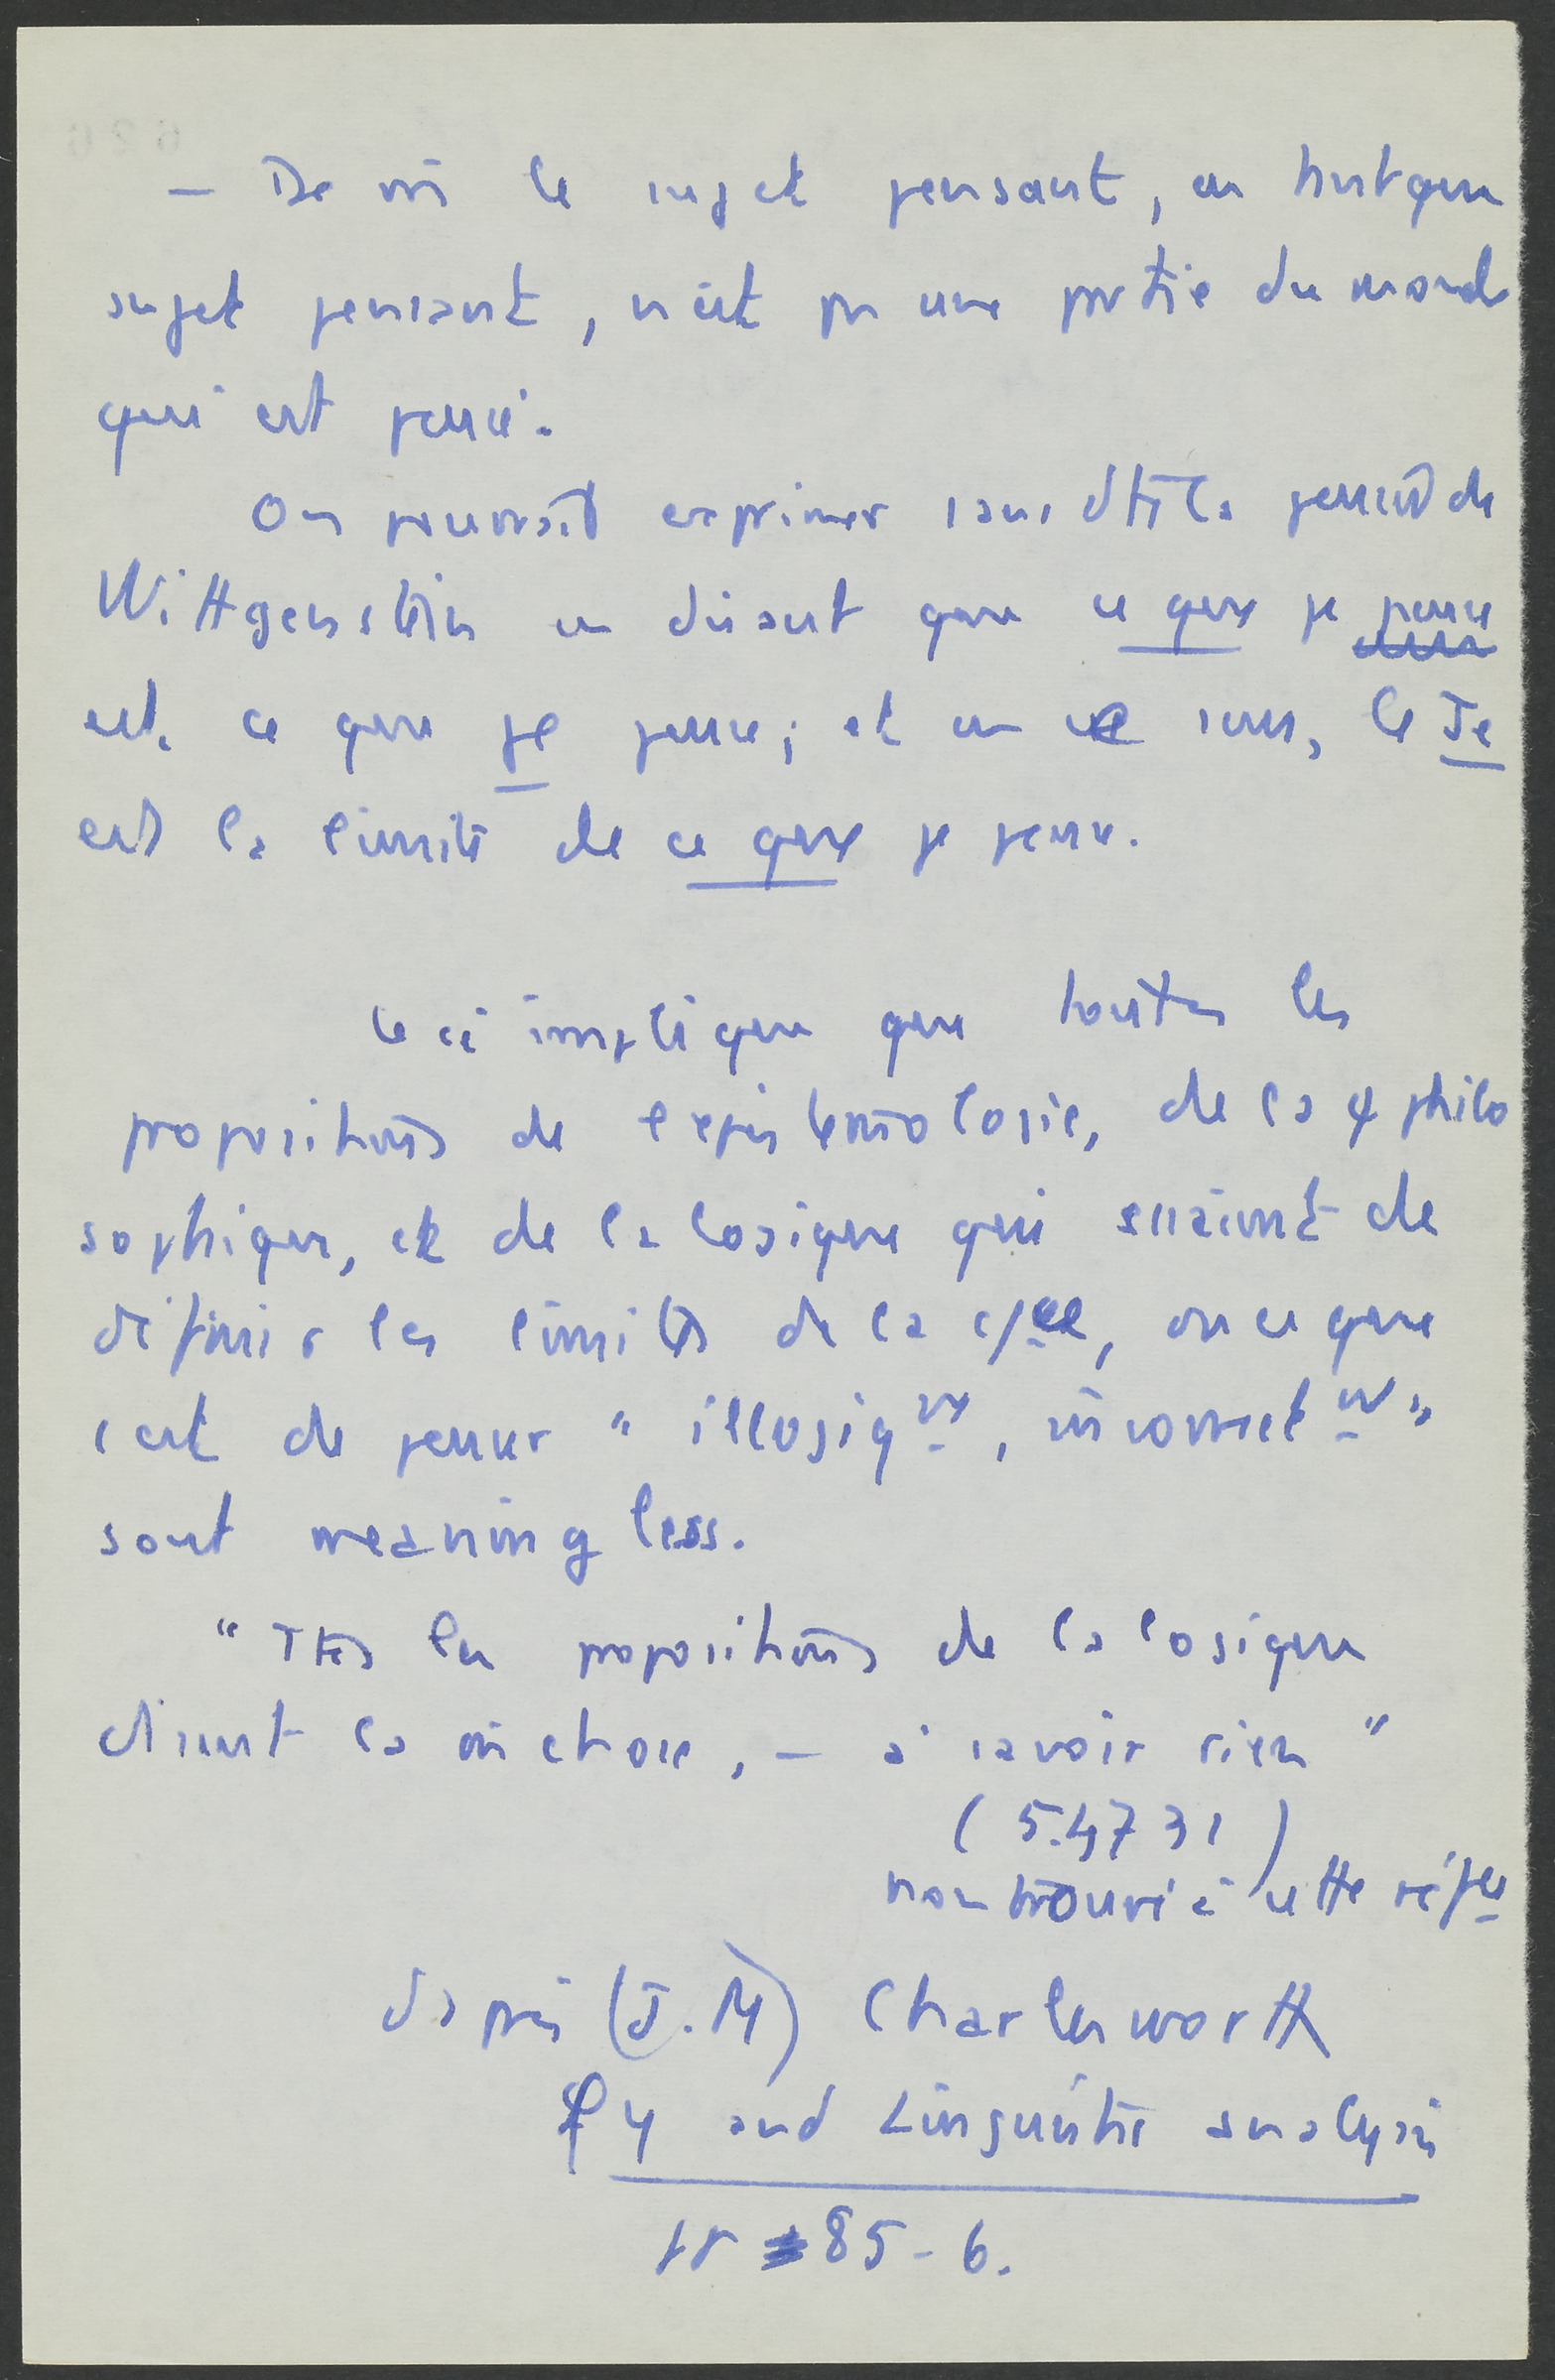 — De m̂ le sujet pensant, en tant que
sujet pensant, n'est pas une partie du monde
qui est pensé.
On pourrait exprimer sans dte la pensée de
Wittgenstein en disant que ce que je pense
est ce que je pense ; et en ce sens, le Je
est la limite de ce que je pense.
Ceci implique que toutes les
propositions de l'épistémologie, de la ψ philo
sophique, et de la logique qui essaient de
définir les limites de la c/ce, ou ce que
c'est de penser "illogiqnt, incorrectnt"
sont meaningless.
"Ttes les propositions de la logique
disent la m̂ chose, — à savoir rien"
(5.4731)
non trouvé à cette réfce
d'après (J.M) Charlesworth
φy and Linguistic analysis
pp 85-6.